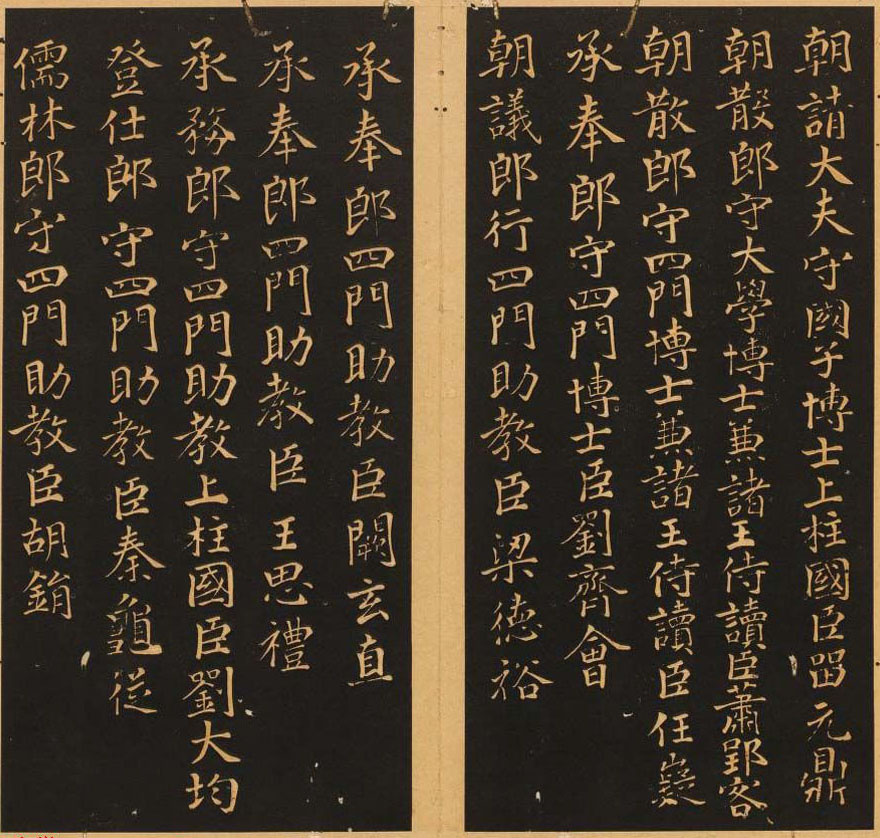 朝請大夫守國子博士上柱國臣留元鼎
朝散郎守大學博士兼諸王侍讀臣蕭郢客
朝散郎守四門博士兼諸王侍讀臣任嶷
承奉郎守四門博士臣劉齊會
朝議郎行四門助教臣梁德裕
承奉郎四門助教臣闕玄直
承奉郎四門助教臣王思禮
承務郎守四門助教上柱國臣劉大均
登仕郎守四門助教臣秦龜從
儒林郎守四門助教臣胡銷